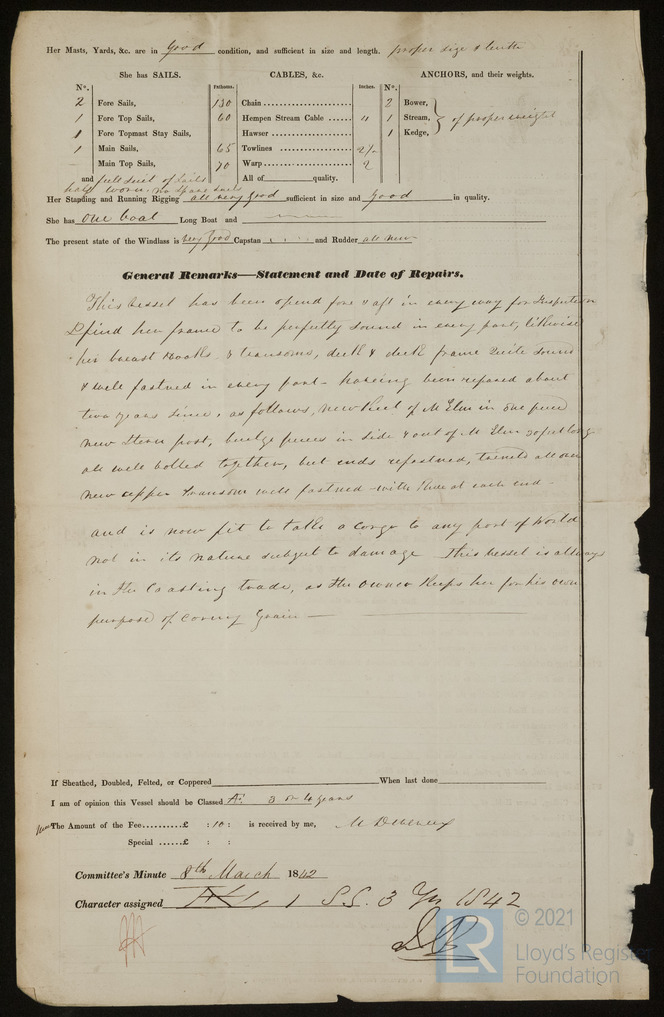 Her Masts, Yards, &c. are in Good condition, and sufficient in size and length. proper size &
She has SAILS. CABLES, &c. ANCHORS, and their weights.
No. Fathoms. Inches. No.
2 Fore Sails, 130 Chain 2 Bower,
1 Fore Top Sails, 60 Hempen Stream Cable 1 Stream, of proper weight
1 Fore Topmast Stay Sails, Hawser 1 Kedge,
1 Main Sails, 65 Towlines
Main Top Sails, 70 Warp 2
and full suit of Sails All of quality.
half worn. no spare sails
Her Standing and Running Rigging all very good sufficient in size and Good in quality.
She has one boat Long Boat and
The present state of the Windlass is very good Capstan and Rudder all new
General Remarks—Statement and Date of Repairs.
This vessel has been opend fore & aft in every way for Inspection
I find her frame to be perfectly sound in every part, likewise
her breast Hooks & transoms, deck & deck frame Quite sound
& well fastned in every part - haveing been repared about
two years since, as follows, new Keel of Am Elm in one piece
new Stern post, bulge pieces in side & out of Am Elm long
all well bolted together, but ends refastned, trenels all over
new upper transom well fastned with three at each end -
and is now fit to take a cargo to any part of World
not in its nature subject to damage This vessel is always
in the Coasting trade, as the Owner Keeps her for his own
purpose of Grain —
If Sheathed, Doubled, Felted, or Coppered When last done
I am of opinion this Vessel should be Classed A. 3 or 4 years
The Amount of the Fee..........£ : 10 : is received by me,
Special ......£ : :
Committee's Minute 8th March 1842
Character assigned 1 S.S. 3 Yrs 1842
© 2021
LR
Lloyd's Register
Foundation